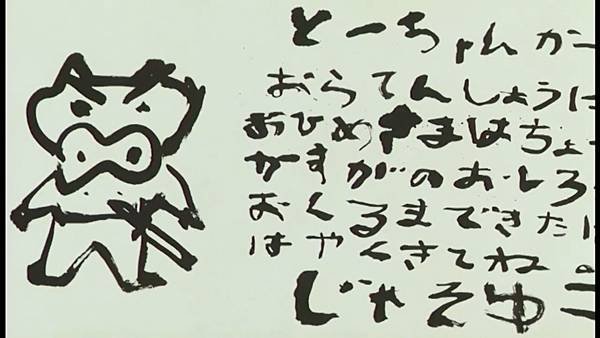 とーちゃん かー
おらてんしょうに
おひめさまはちょ
かすがのおしろ
おくるまできた
はやくきてね。
じゃそゆこ